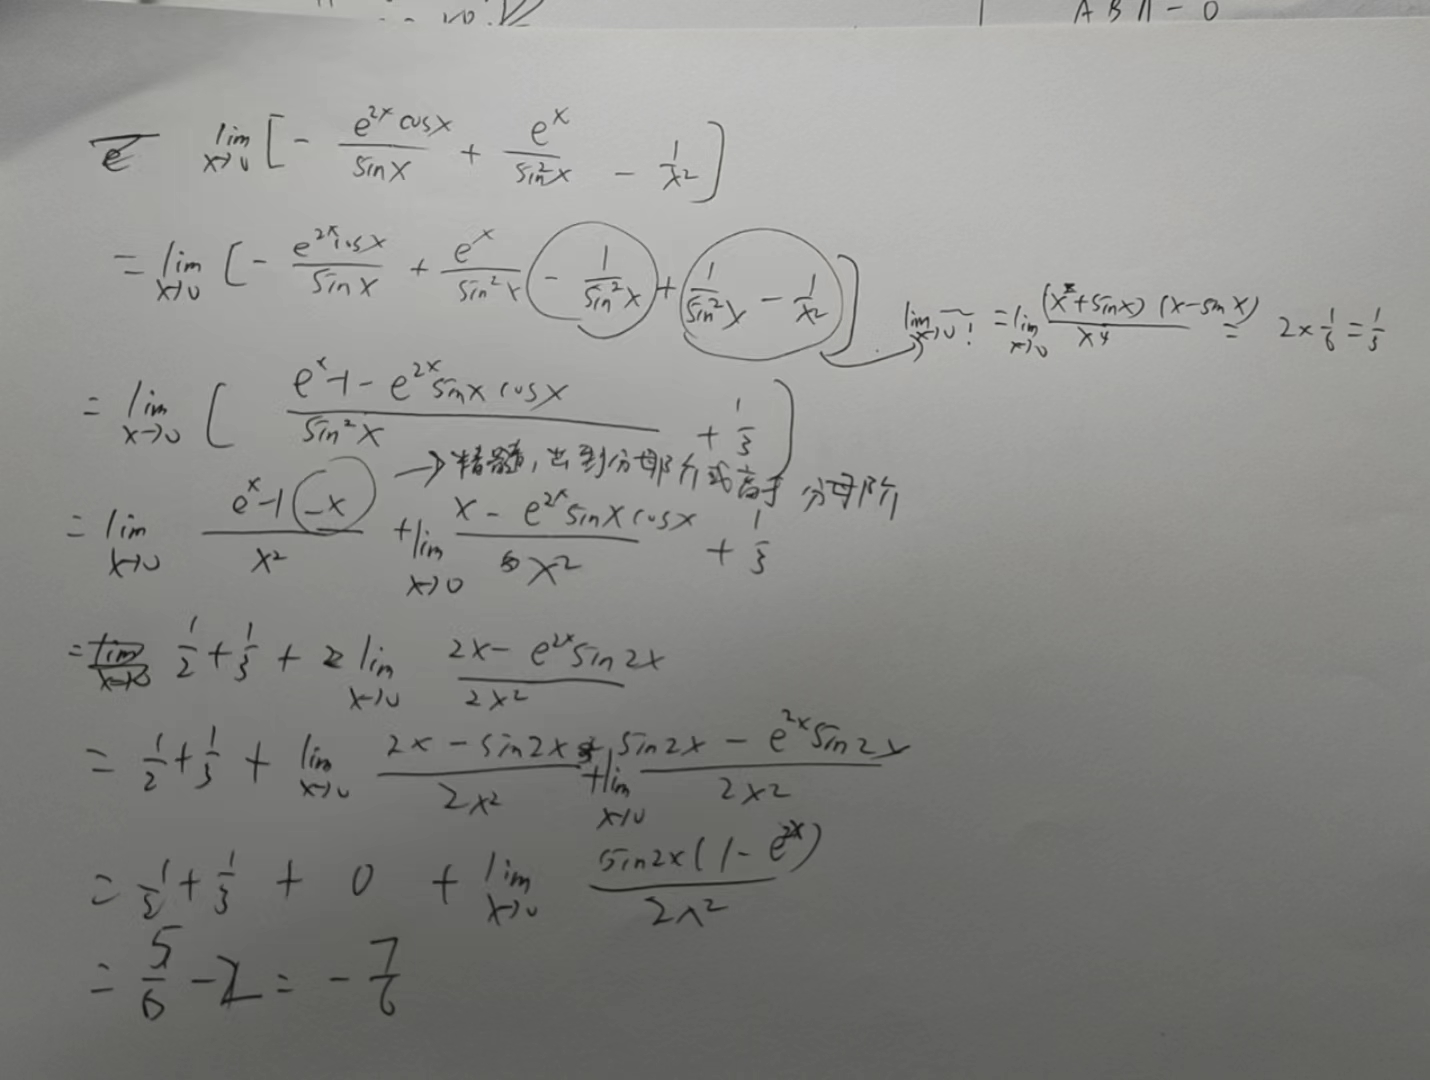 A B
lim x→0 [ - e^{2x} cosx / sinx + e^x / sin²x - 1/x² ]
= lim x→0 [ - e^{2x} cosx / sinx + e^x / sin²x - 1/sin²x + 1/sin²x - 1/x² ]
lim x→0 = lim x→0 (x+sinx)(x-sinx) / x⁴ = 2×1/6 = 1/3
= lim x→0 [ e^x-1-e^{2x}sinx cosx / sin²x + 1/3 ]
→ 精髓,出到分母阶或高于分母阶
= lim x→0 e^x-1-x / x² + lim x→0 x-e^{2x}sinx cosx / x² + 1/3
= 1/2 + 1/3 + lim x→0 2x-e^{2x}sin2x / 2x²
= 1/2 + 1/3 + lim x→0 2x-sin2x / 2x² + lim x→0 sin2x-e^{2x}sin2x / 2x²
= 1/2 + 1/3 + 0 + lim x→0 sin2x(1-e^{2x}) / 2x²
= 5/6 - 2 = - 7/6